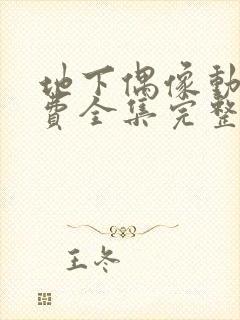 地下偶像動
費全集完整
王冬